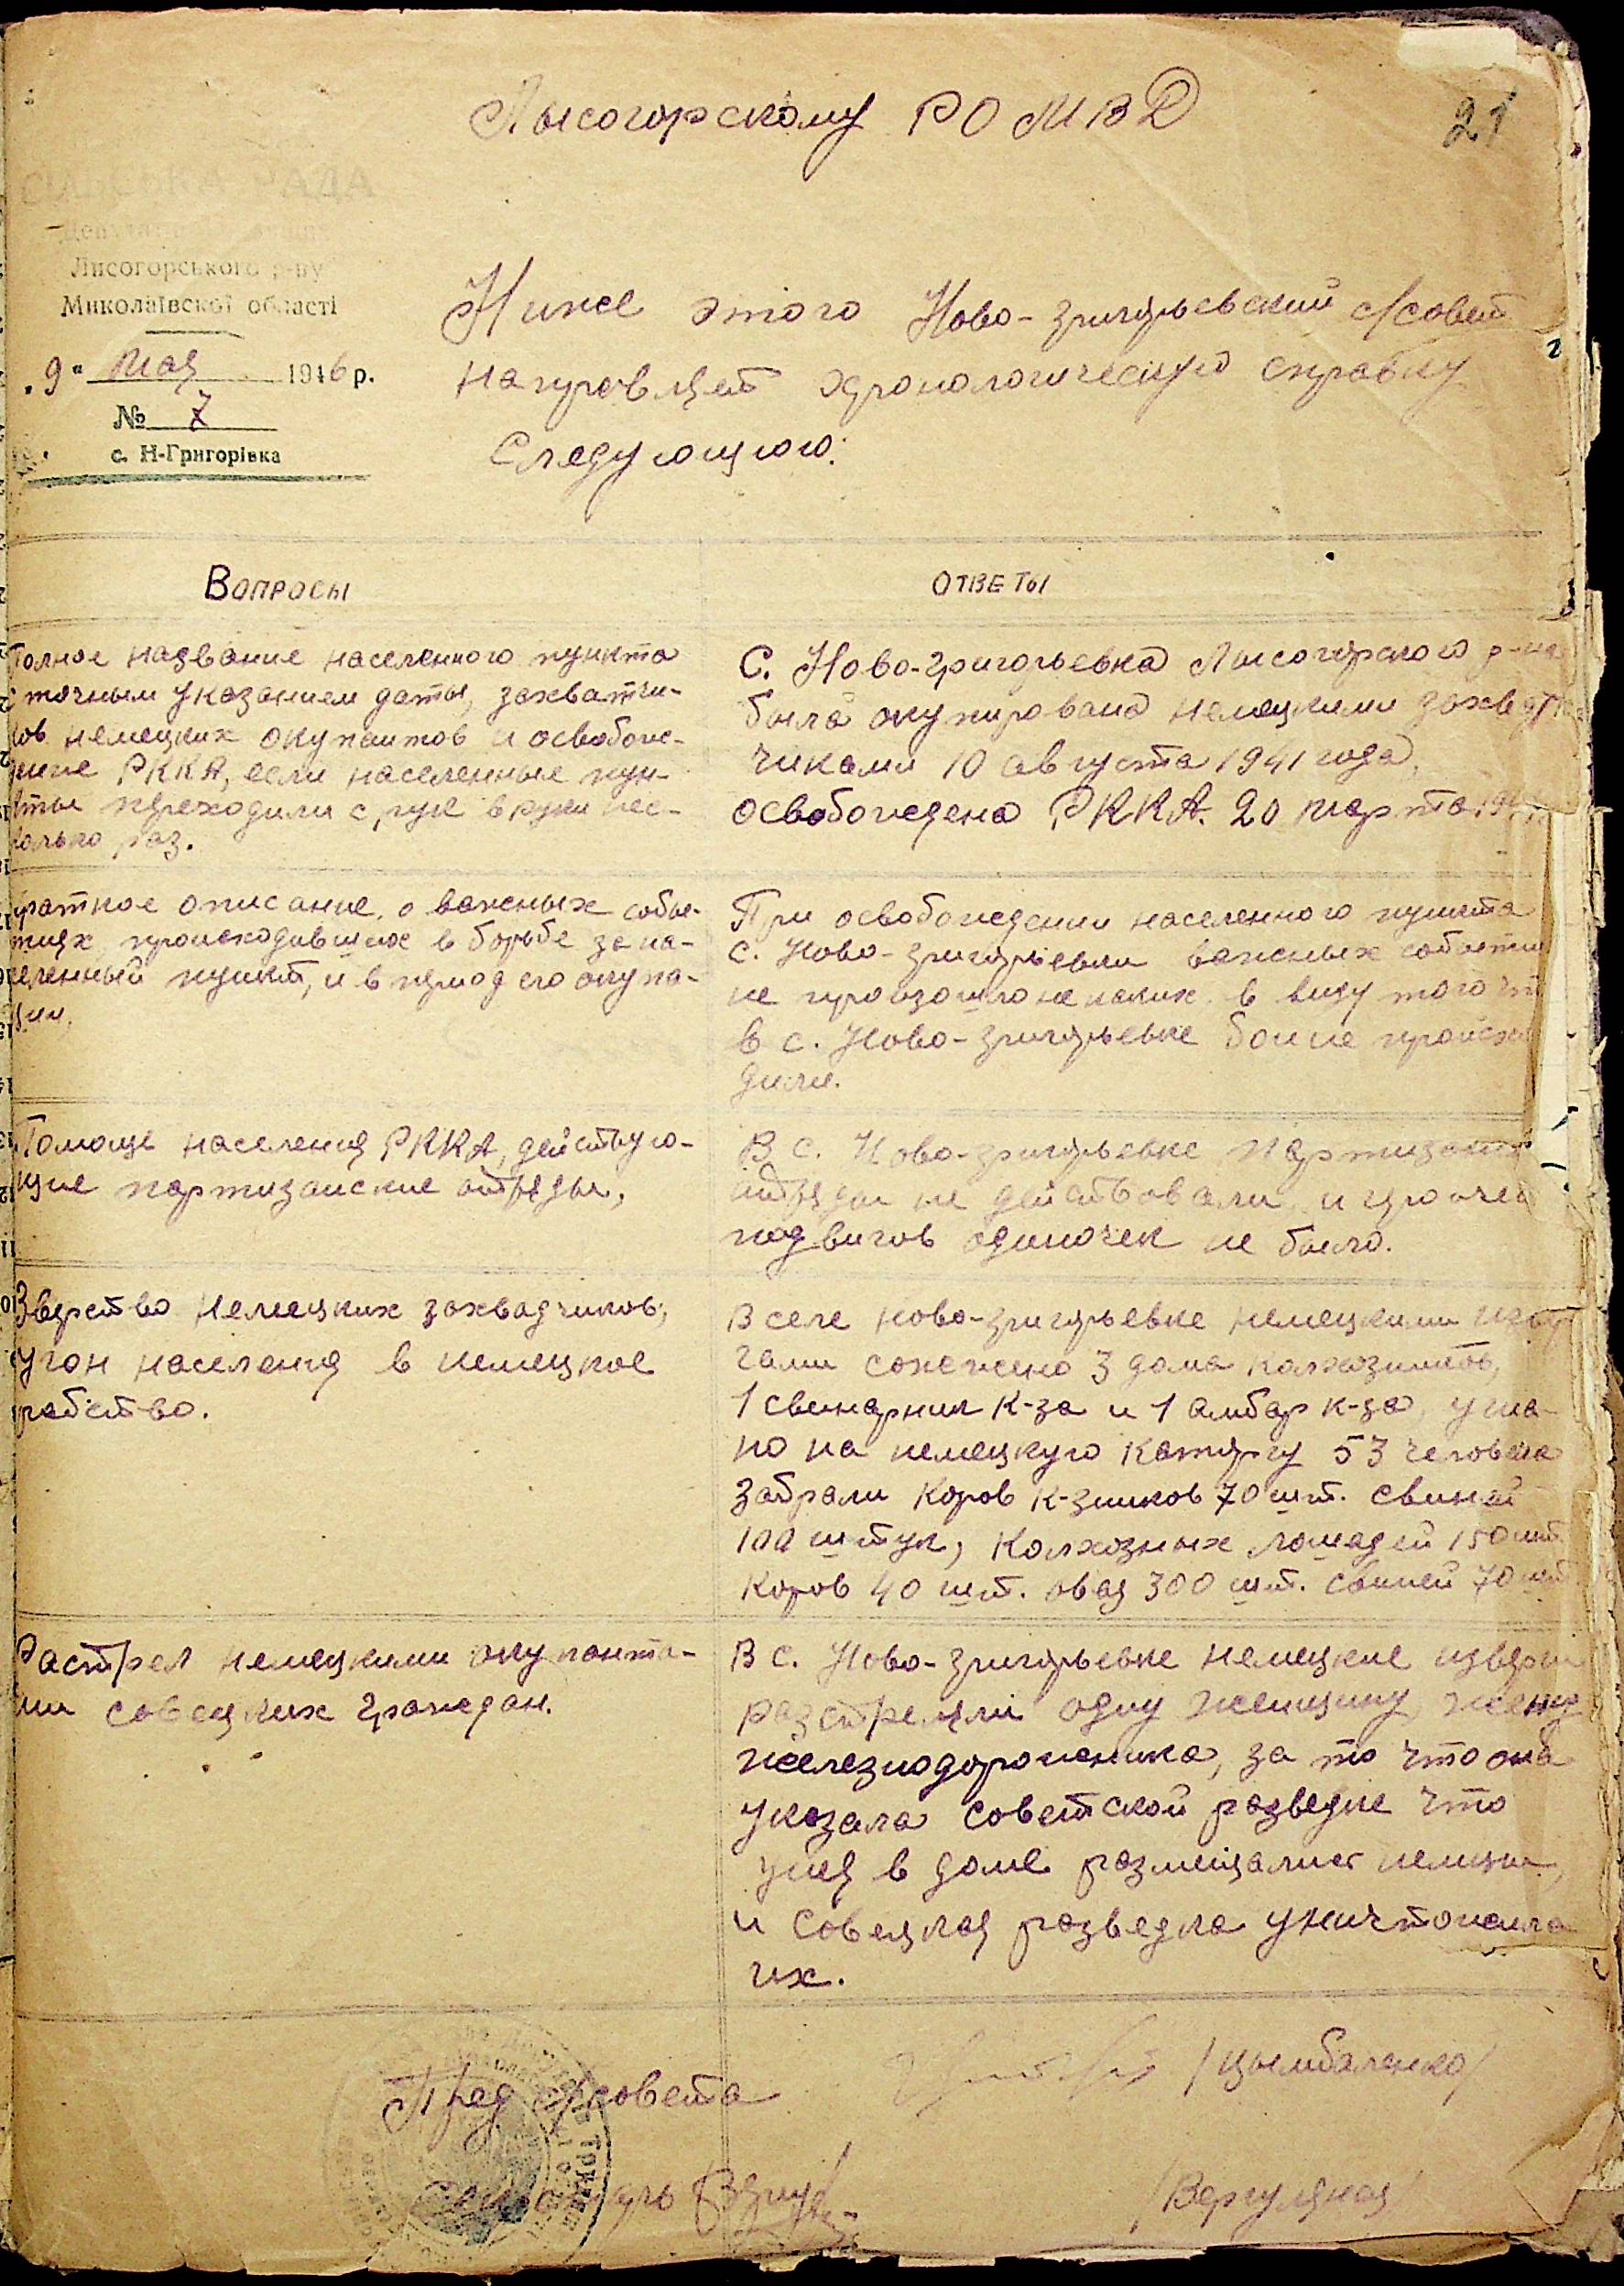 Лысогорскому РО МВД
21
СІЛЬСЬКА РАДА
Лисогорського р-ну
Миколаївської області
„9" мая 1946 р.
№ 7
с. Н-Григорівка
Ниже этого Ново-григорьевский с/совет
направляет хронологическую справку
Следующою:
Вопросы
ответы
Полное название населенного пункта
с точным указанием даты, захватчи-
ков немецких окупантов и освобож-
дение РККА, если населенные пун-
кты переходили с рук в руки нес-
колько раз.
С. Ново-григорьевка Лысогорского р-на
была окупирована немецкими захват
чиками 10 августа 1941 года,
освобождена РККА. 20 марта 194
Краткое описание о важных собы-
тиях происходивших в борьбе за на-
селенный пункт, и в период его окупа-
ции.
При освобождении населенного пункта
с. Ново-григорьевки важных событи
не произошло не каких в виду того чт
в с. Ново-григорьевке бои не происхо
дили.
Помощь населения РККА, действую-
щие партизанские отряды,
В с. Ново-григорьевке партизанс
отряды не действовали, и
подвигов одиночек не было.
Зверство немецких захвадчиков,
угон населения в немецкое
рабство.
В селе ново-григорьевке немецкими
сожжено 3 дома колхозников,
1 свинарник к-за и 1 амбар к-за, угна-
но на немецкую каторгу 53 человека
забрали коров к-зников 70 шт. свиней
100 штук, колхозных лошадей 150 шт.
коров 40 шт. овец 300 шт. свиней 70 шт
Растрел немецкими окупанта-
ми совецких граждан.
В с. Ново-григорьевке немецкие изверги
разстреляли одну женщину, жену
железнодорожника, за то что она
указала советской разведке что
у нея в доме размещались немцы,
и совецкая разведка уничтожила
их.
Пред с/совета
/Цымбаленко/
Секретарь
/Вергуляцкая/